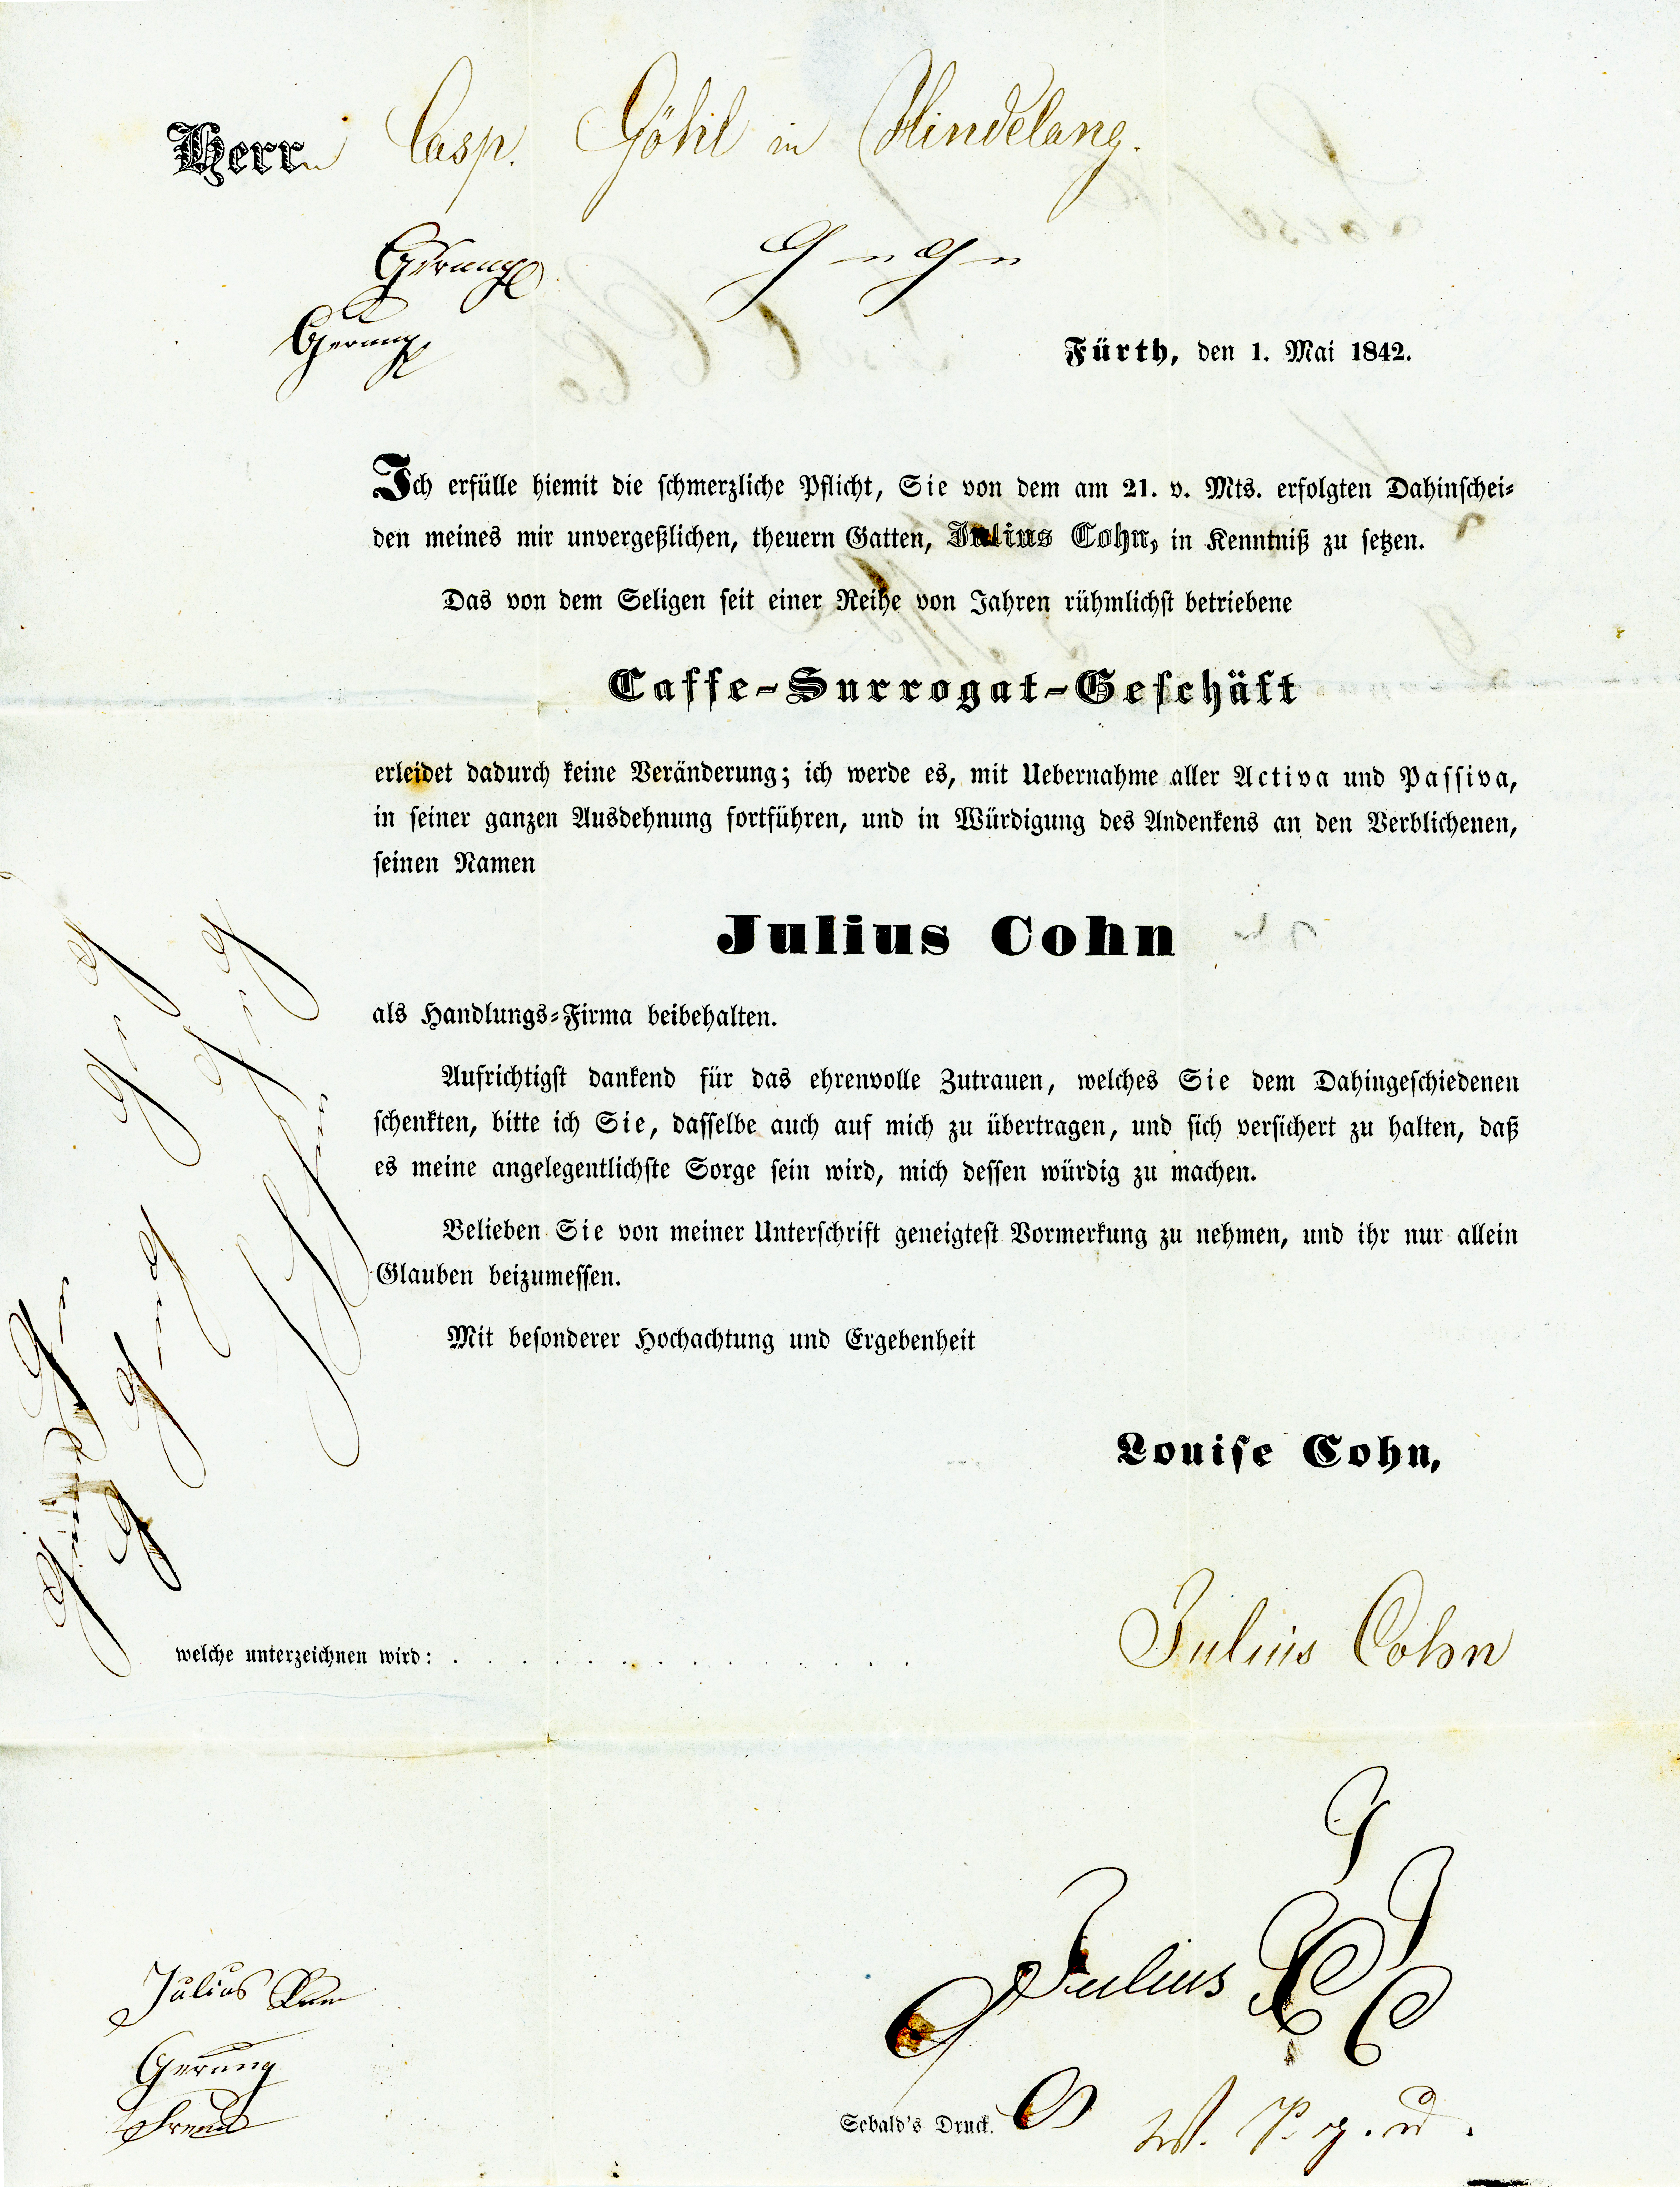 Herrn Casp. Göhl in Hindelang.
Gerung
Gerung
Fürth, den 1. Mai 1842.
Ich erfülle hiemit die schmerzliche Pflicht, Sie von dem am 21. v. Mts. erfolgten Dahinschei-
den meines mir unvergeßlichen, theuern Gatten, Julius Cohn, in Kenntniß zu setzen.
Das von dem Seligen seit einer Reihe von Jahren rühmlichst betriebene
Caffe-Surrogat-Geschäft
erleidet dadurch keine Veränderung; ich werde es, mit Uebernahme aller Activa und Passiva,
in seiner ganzen Ausdehnung fortführen, und in Würdigung des Andenkens an den Verblichenen,
seinen Namen
Julius Cohn
als Handlungs-Firma beibehalten.
Aufrichtigst dankend für das ehrenvolle Zutrauen, welches Sie dem Dahingeschiedenen
schenkten, bitte ich Sie, dasselbe auch auf mich zu übertragen, und sich versichert zu halten, daß
es meine angelegentlichste Sorge sein wird, mich dessen würdig zu machen.
Belieben Sie von meiner Unterschrift geneigtest Vormerkung zu nehmen, und ihr nur allein
Glauben beizumessen.
Mit besonderer Hochachtung und Ergebenheit
Louise Cohn,
welche unterzeichnen wird: . . . . . . . . . . . . . . Julius Cohn
Julius
Julius
Gerung
Sebald's Druck.